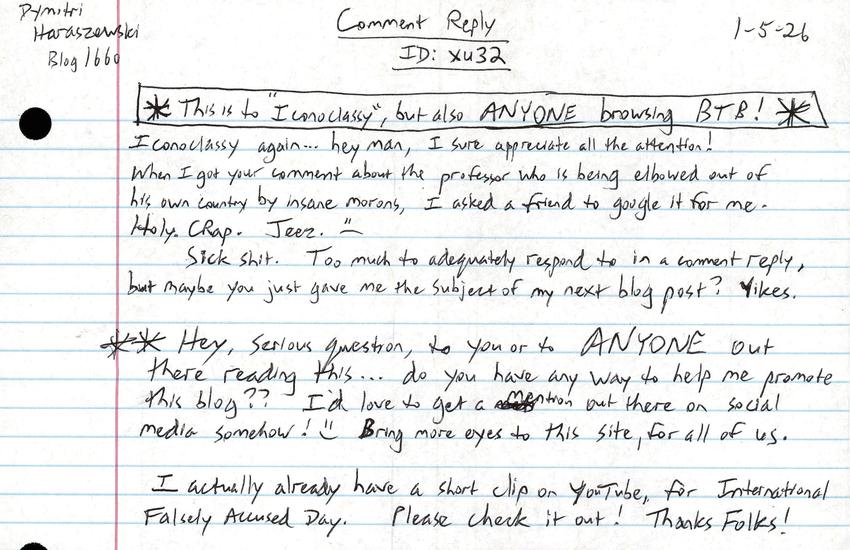 Dymitri
Haraszewski
Blog 1660
Comment Reply
ID: xu32
1-5-26
* This is to "Iconoclassy", but also ANYONE browsing BTB! *
Iconoclassy again... hey man, I sure appreciate all the attention!
When I got your comment about the professor who is being elbowed out of
his own country by insane morons, I asked a friend to google it for me.
Holy. CRap. Jeez. :(
Sick shit. Too much to adequately respond to in a comment reply,
but maybe you just gave me the subject of my next blog post? Yikes.
** Hey, serious question, to you or to ANYONE out
there reading this... do you have any way to help me promote
this blog?? I'd love to get a mention out there on social
media somehow! :) Bring more eyes to this site, for all of us.
I actually already have a short clip on YouTube, for International
Falsely Accused Day. Please check it out! Thanks Folks!